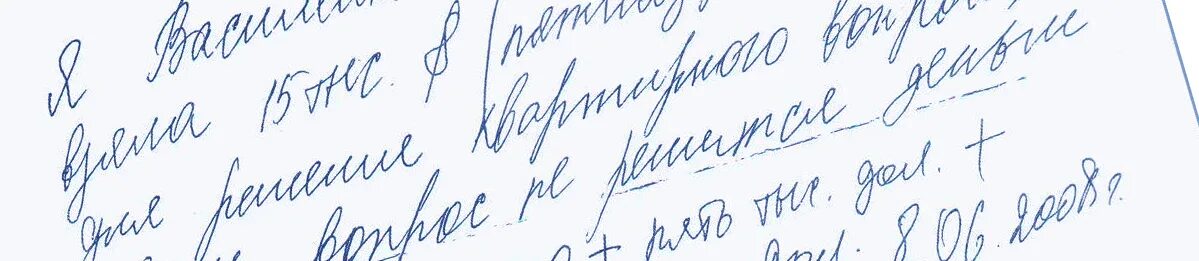 Я Василе
взяла 15 тыс. $ (пятнад
для решения квартирного вопроса
вопрос не решится деньги
+ пять тыс. дол. +
8.06.2008г.